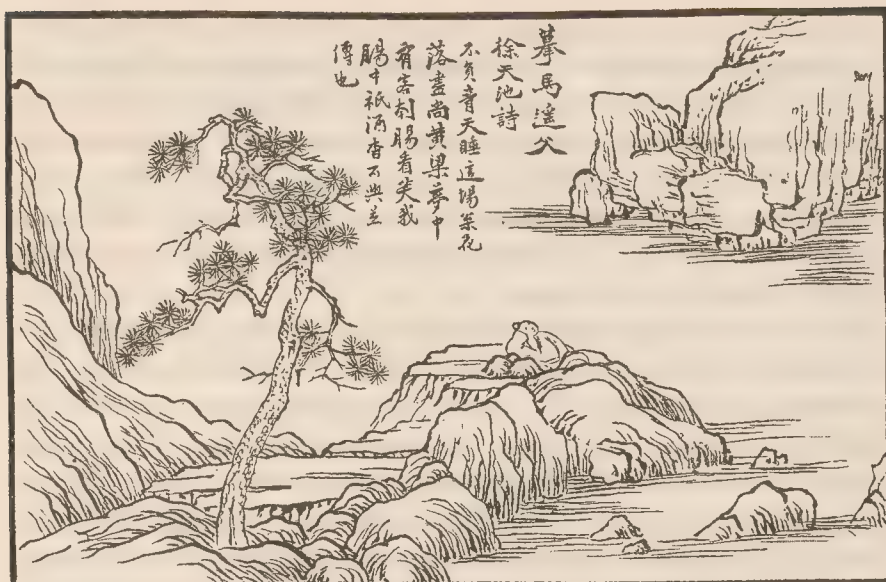 摹馬遙父
徐天池詩
不負青天睡這場枀花
落盡尚黃粱夢中
有客刳腸看笑我
腸中祇酒香石與並
傳也